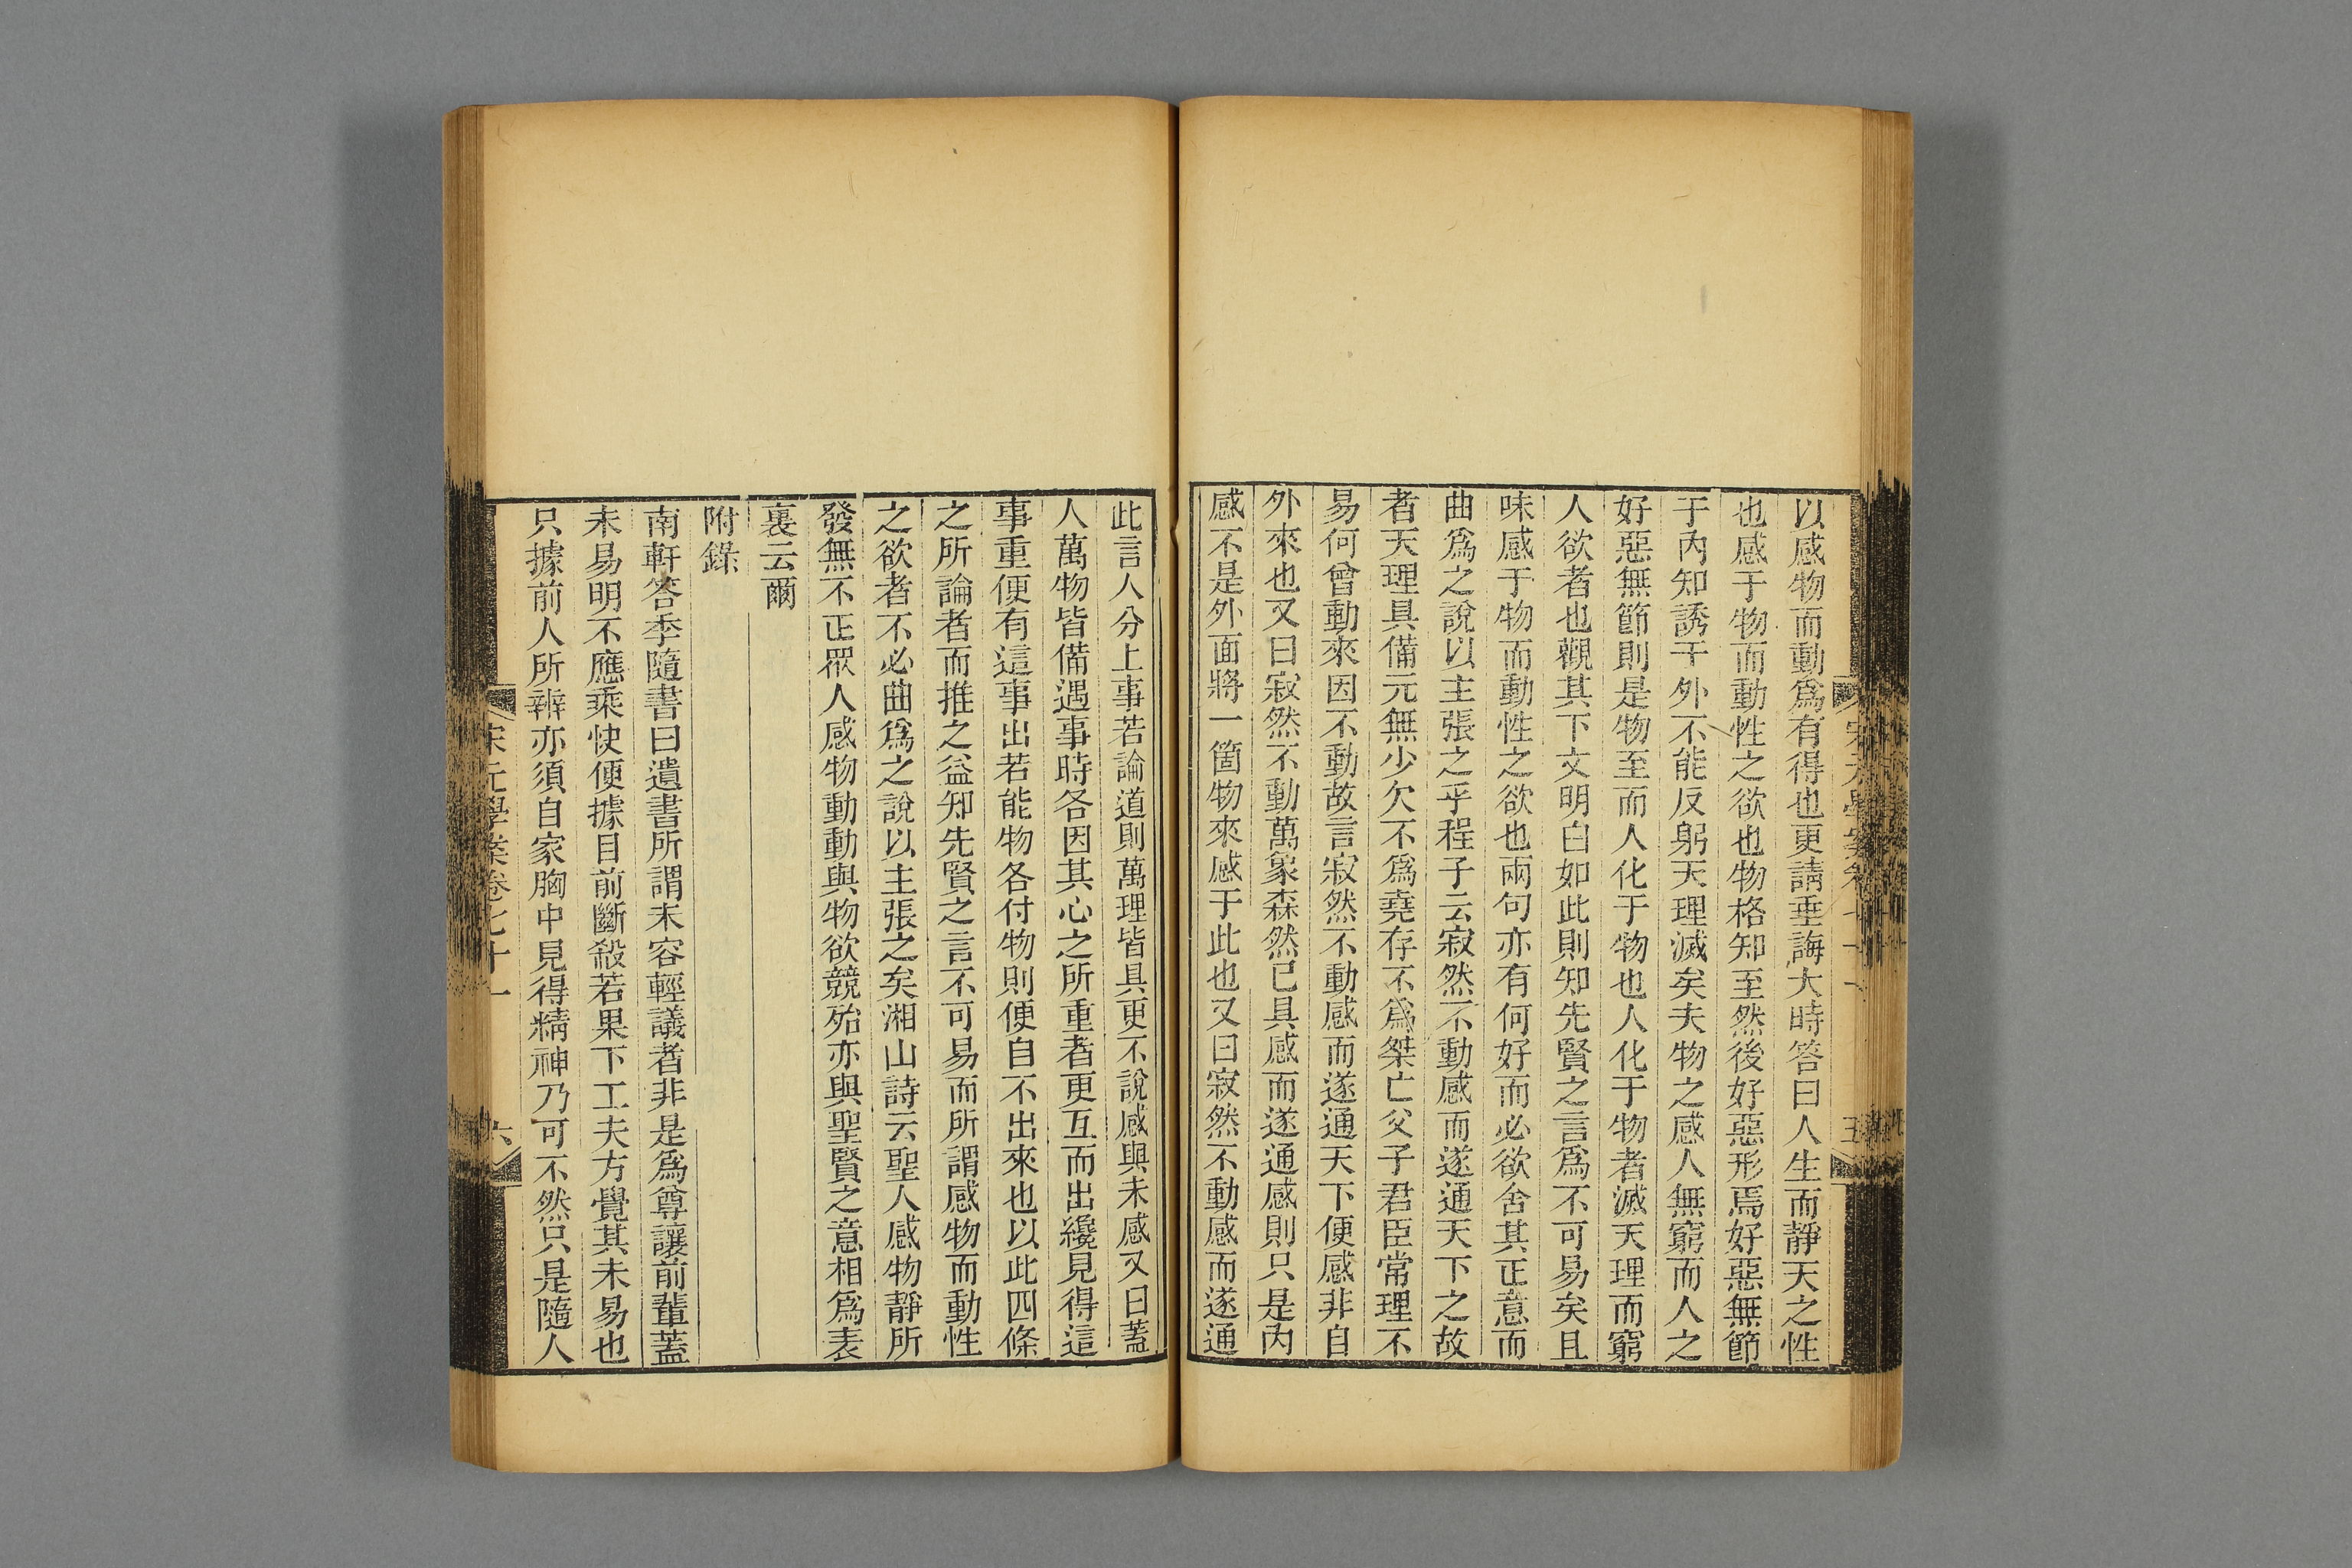 以感物而動爲有得也更請垂誨大時答曰人生而靜天之性
也感于物而動性之欲也物格知至然後好惡形焉好惡無節
于內知誘于外不能反躬天理滅矣夫物之感人無窮而人之
好惡無節則是物至而人化于物也人化于物者滅天理而窮
人欲者也觀其下文明白如此則知先賢之言爲不可易矣且
味感于物而動性之欲也兩句亦有何好而必欲舍其正意而
曲爲之說以主張之乎程子云寂然不動感而遂通天下之故
者天理具備元無少欠不爲堯存不爲桀亡父子君臣常理不
易何曾動來因不動故言寂然不動感而遂通天下便感非自
外來也又曰寂然不動萬象森然已具感而遂通感則只是內
感不是外面將一箇物來感于此也又曰寂然不動感而遂通
此言人分上事若論道則萬理皆具更不說感與未感又曰蓋
人萬物皆備遇事時各因其心之所重者更互而出纔見得這
事重便有這事出若能物各付物則便自不出來也以此四條
之所論者而推之益知先賢之言不可易而所謂感物而動性
之欲者不必曲爲之說以主張之矣湘山詩云聖人感物靜所
發無不正眾人感物動動與物欲競殆亦與聖賢之意相爲表
裏云爾
附錄
南軒答季隨書曰遺書所謂未容輕議者非是爲尊讓前輩蓋
未易明不應乘快便據目前斷殺若果下工夫方覺其未易也
只據前人所辨亦須自家胸中見得精神乃可不然只是隨人
宋元學案卷七十一
六